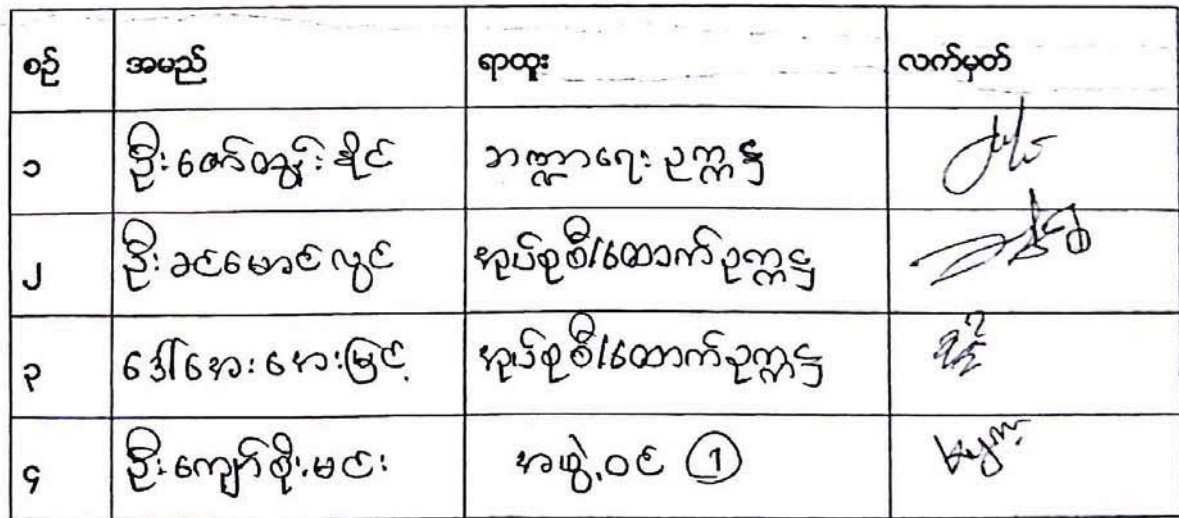 စဉ် အမည် ရာထူး လက်မှတ်
၁ ဦးဇော်ထွန်းနိုင် ဘဏ္ဍာရေးဥက္ကဋ္ဌ
၂ ဦးခင်မောင်လွင် အုပ်စုစီ/ထောက်ဥက္ကဋ္ဌ
၃ ဒေါ်အေးအေးမြင့် အုပ်စုစီ/ထောက်ဥက္ကဋ္ဌ
၄ ဦးကျော်စိုးမင်း အဖွဲ့ဝင် 1